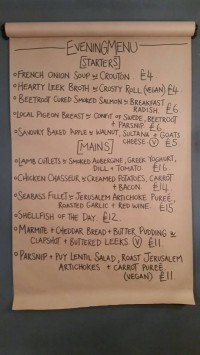 EVENING MENU
[STARTERS]
○ FRENCH ONION SOUP & CROUTON £4
○ HEARTY LEEK BROTH & CRUSTY ROLL (VEGAN) £4.
○ BEETROOT CURED SMOKED SALMON & BREAKFAST
RADISH. £6
○ LOCAL PIGEON BREAST & CONFIT OF SWEDE, BEETROOT
+ PARSNIP. £6
○ SAVOURY BAKED APPLE & WALNUT, SULTANA & GOATS
CHEESE (V) £5
[MAINS]
○ LAMB CUTLETS & SMOKED AUBERGINE, GREEK YOGHURT,
DILL + TOMATO. £16
○ CHICKEN CHASSEUR & CREAMED POTATOES, CARROT
+ BACON. £14
○ SEABASS FILLET & JERUSALEM ARTICHOKE PUREE,
ROASTED GARLIC + RED WINE. £15
○ SHELLFISH OF THE DAY £12
○ MARMITE + CHEDDAR BREAD + BUTTER PUDDING &
CLAPSHOT + BUTTERED LEEKS. (V) £11
○ PARSNIP + PUY LENTIL SALAD, ROAST JERUSALEM
ARTICHOKES + CARROT PUREE.
(VEGAN) £11